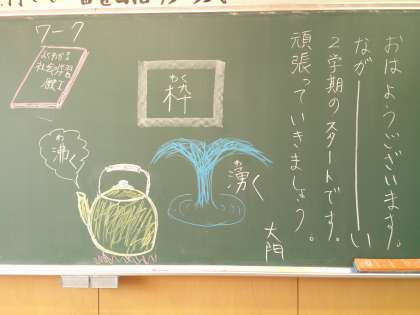 おはようございます。
ながーーーーい
2学期のスタートです。
頑張っていきましょう。
大門
ワーク
よくわかる
社会の学習
わく
枠
わ
沸く
わ
湧く